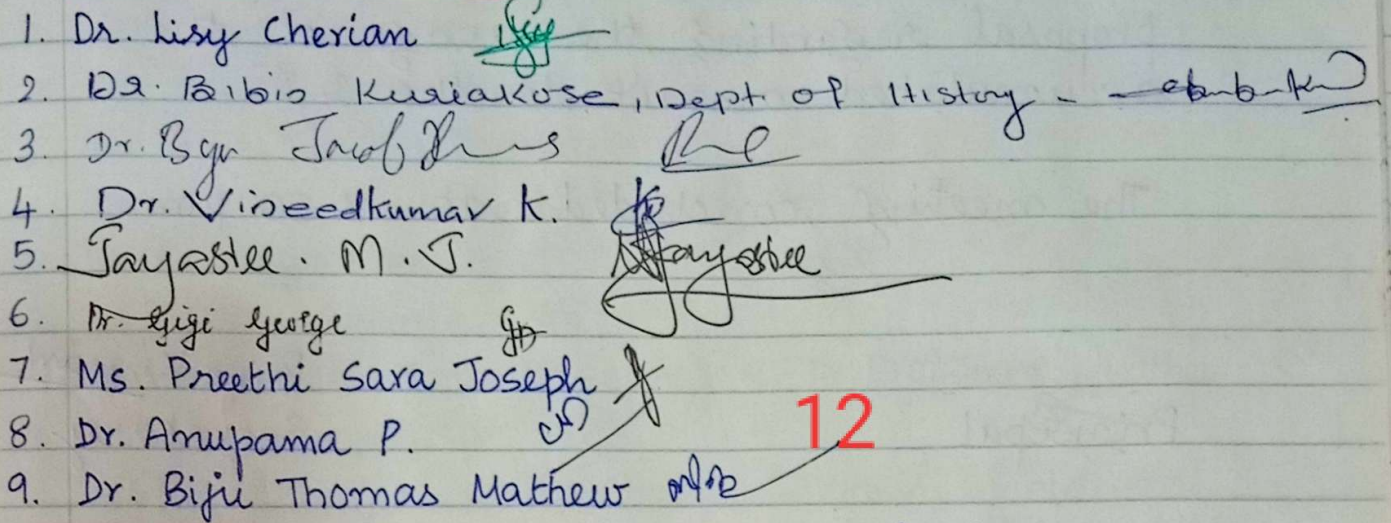 1. Dr. Lisy Cherian
2. Dr. Bibin Kuriakose, Dept of History -
3. Dr. Jacob
4. Dr. Vineedkumar K.
5. Jayasree. M. J. Jayasree
6. Dr. Gigi George
7. Ms. Preethi Sara Joseph
8. Dr. Anupama P.
12
9. Dr. Biju Thomas Mathew